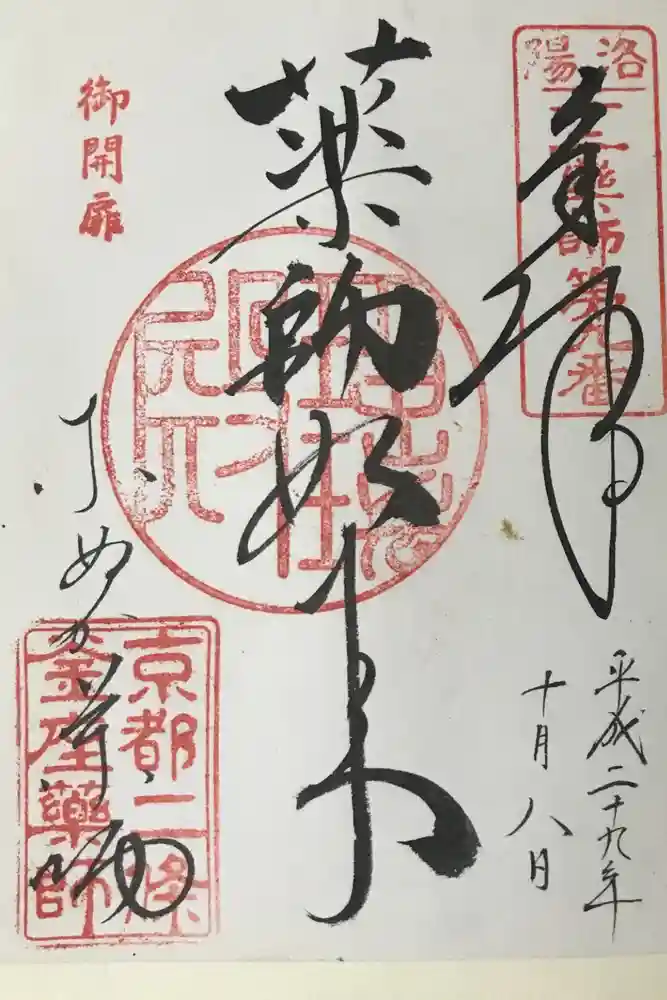 洛陽
十二藥師第九番
奉拝
平成二十九年
十月八日
薬師如来
御開扉
来ぬか薬師
京都二條
釜座藥師